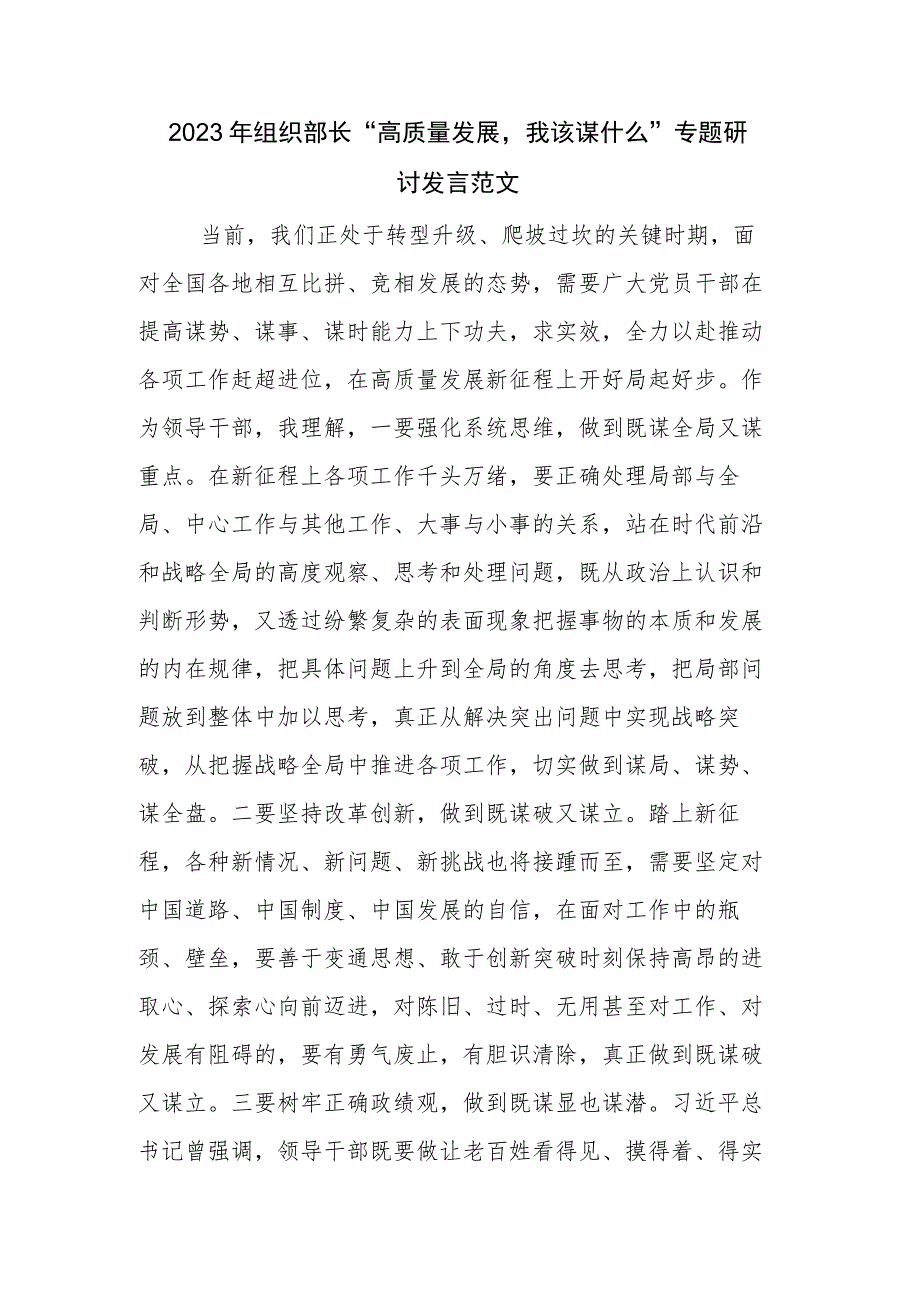 2023年组织部长“高质量发展，我该谋什么”专题研
讨发言范文
当前，我们正处于转型升级、爬坡过坎的关键时期，面
对全国各地相互比拼、竞相发展的态势，需要广大党员干部在
提高谋势、谋事、谋时能力上下功夫，求实效，全力以赴推动
各项工作赶超进位，在高质量发展新征程上开好局起好步。作
为领导干部，我理解，一要强化系统思维，做到既谋全局又谋
重点。在新征程上各项工作千头万绪，要正确处理局部与全
局、中心工作与其他工作、大事与小事的关系，站在时代前沿
和战略全局的高度观察、思考和处理问题，既从政治上认识和
判断形势，又透过纷繁复杂的表面现象把握事物的本质和发展
的内在规律，把具体问题上升到全局的角度去思考，把局部问
题放到整体中加以思考，真正从解决突出问题中实现战略突
破，从把握战略全局中推进各项工作，切实做到谋局、谋势、
谋全盘。二要坚持改革创新，做到既谋破又谋立。踏上新征
程，各种新情况、新问题、新挑战也将接踵而至，需要坚定对
中国道路、中国制度、中国发展的自信，在面对工作中的瓶
颈、壁垒，要善于变通思想、敢于创新突破时刻保持高昂的进
取心、探索心向前迈进，对陈旧、过时、无用甚至对工作、对
发展有阻碍的，要有勇气废止，有胆识清除，真正做到既谋破
又谋立。三要树牢正确政绩观，做到既谋显也谋潜。习近平总
书记曾强调，领导干部既要做让老百姓看得见、摸得着、得实